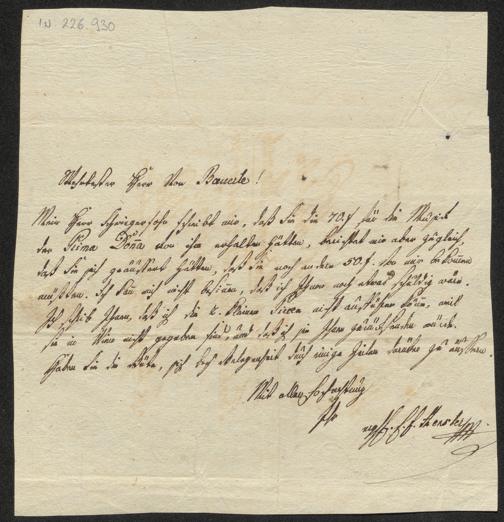 IN. 226.930
Herr von Bauerle!
Mein Herr Schwiegersohn schreibt mir, daß Sie die 70 f für die Musik
der Prima Dona von ihm erhalten hätten, berichtet mir aber zugleich,
daß Sie sich geäussert hätten, daß Sie noch andere 50 f. von mir bekommen
müßten. Ich kann mich nicht besinnen, daß ich Ihnen noch etwas schuldig wäre.
Ich schrieb Ihnen, daß ich die 2 kleinen nicht aufführen könne, weil
sie in Wien nicht gegeben sind, und daß ich sie Ihnen zurücksenden würde.
Haben Sie die Güte, sich bey Gelegenheit durch einige Zeilen darüber zu äussern.
Mit aller Hochachtung
Ihr
Hensler